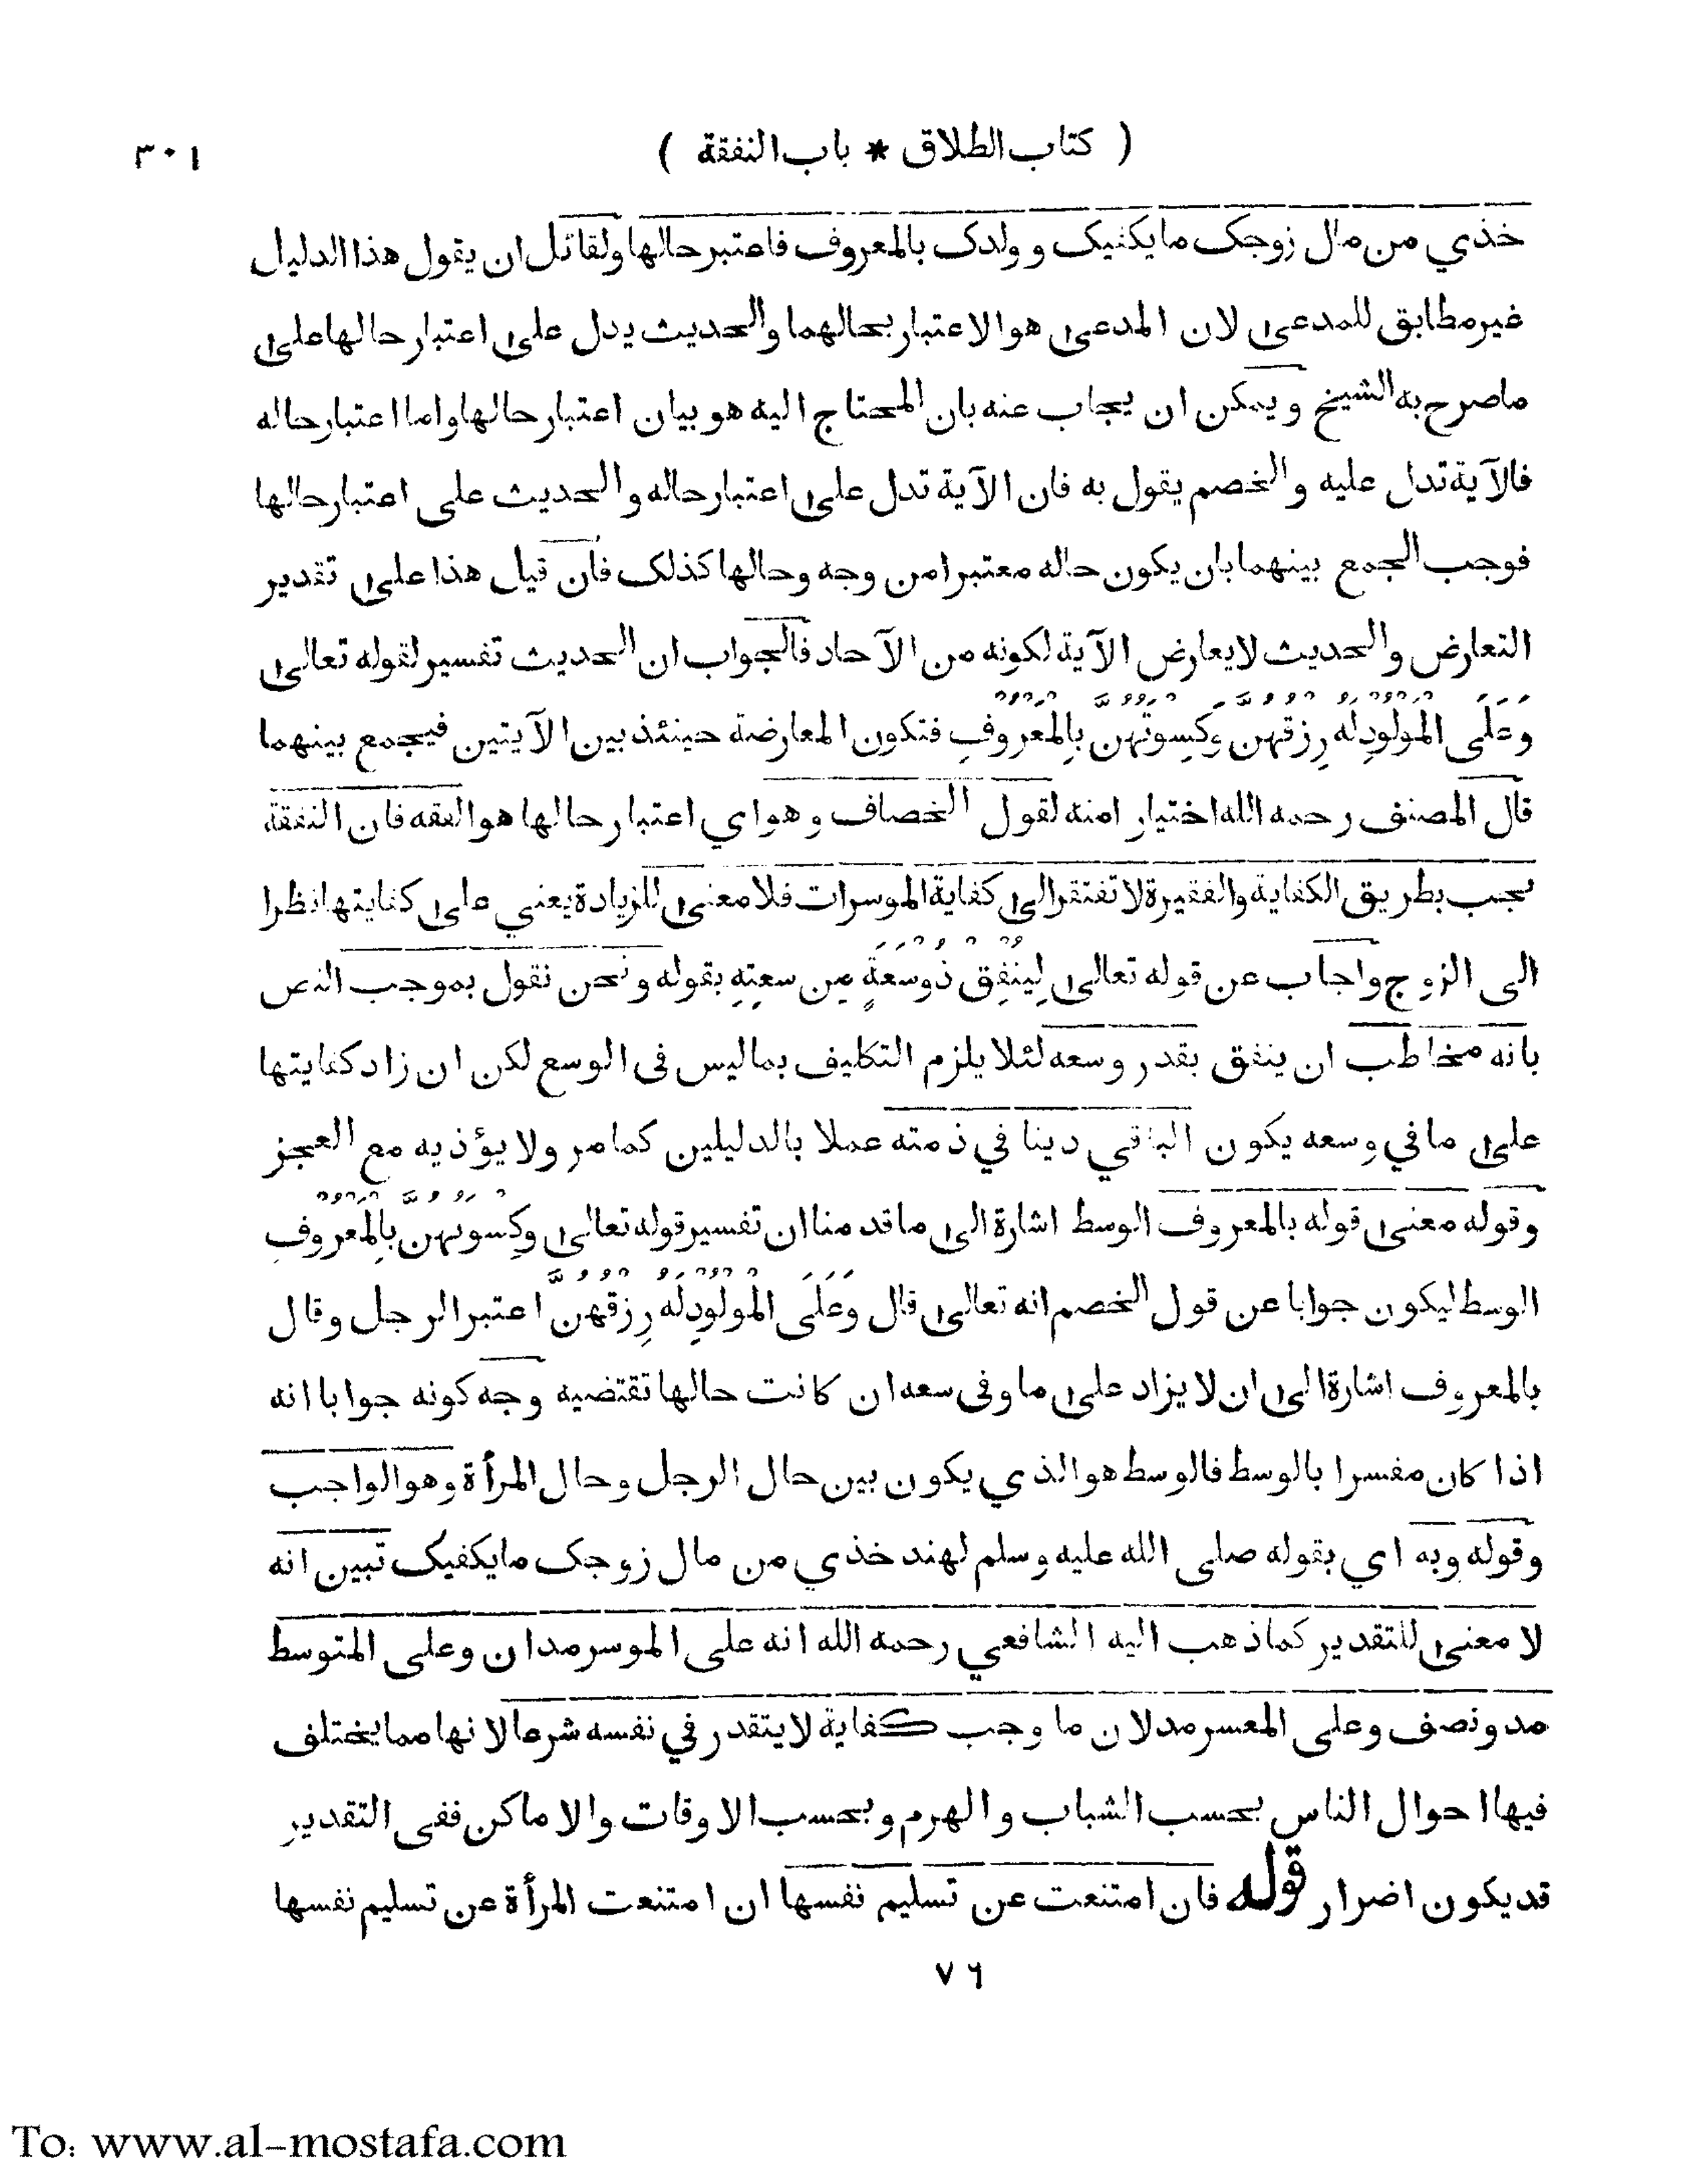 ( كتاب الطلاق * باب النفقة ) ٣٠١
خذي من مال زوجك ما يكفيك و ولدك بالمعروف فاعتبر حالها ولقائل ان يقول هذا الدليل
غير مطابق للمدعى لان المدعى هو الاعتبار بحالهما والحديث يدل على اعتبار حالها على
ما صرح به الشيخ و يمكن ان يجاب عنه بان المحتاج اليه هو بيان اعتبار حالها واما اعتبار حاله
فالآية تدل عليه والخصم يقول به فان الآية تدل على اعتبار حاله والحديث على اعتبار حالها
فوجب الجمع بينهما بان يكون حاله معتبرا من وجه وحالها كذلك فان قيل هذا على تقدير
التعارض والحديث لا يعارض الآية لكونه من الآحاد فالجواب ان الحديث تفسير لقوله تعالى
وَعَلَى الْمَوْلُودِ لَهُ رِزْقُهُنَّ وَكِسْوَتُهُنَّ بِالْمَعْرُوفِ فتكون المعارضة حينئذ بين الآيتين فيجمع بينهما
قال المصنف رحمه الله اختيار امنه لقول الخصاف و هو اي اعتبار حالها هو الفقه فان النفقة
تجب بطريق الكفاية والفقيرة لا تفتقر الى كفاية الموسرات فلا معنى للزيادة يعني على كفايتها نظرا
الى الزوج واجاب عن قوله تعالى لِيُنْفِقْ ذُو سَعَةٍ مِن سعتِهِ بقوله ونحن نقول بموجب النص
بانه مخاطب ان ينفق بقدر وسعه لئلا يلزم التكليف بما ليس فى الوسع لكن ان زاد كفايتها
على ما في وسعه يكون الباقي دينا في ذمته عملا بالدليلين كما مر ولا يؤذيه مع العجز
وقوله معنى قوله بالمعروف الوسط اشارة الى ما قدمنا ان تفسير قوله تعالى وكِسْوَتُهُنَّ بِالْمَعْرُوفِ
الوسط ليكون جوابا عن قول الخصم انه تعالى قال وَعَلَى الْمَوْلُودِ لَهُ رِزْقُهُنَّ اعتبر الرجل وقال
بالمعروف اشارة الى ان لا يزاد على ما وفى سعه ان كانت حالها تقتضيه وجه كونه جوابا انه
اذا كان مفسرا بالوسط فالوسط هو الذي يكون بين حال الرجل وحال المرأة وهو الواجب
وقوله وبه اي بقوله صلى الله عليه وسلم لهند خذي من مال زوجك ما يكفيك تبين انه
لا معنى للتقدير كما ذهب اليه الشافعي رحمه الله انه على الموسر مدان وعلى المتوسط
مد ونصف وعلى المعسر مد لان ما وجب كفاية لا يتقدر في نفسه شرعا لانها مما يختلف
فيها احوال الناس بحسب الشباب والهرم وبحسب الاوقات والاماكن ففى التقدير
قد يكون اضرار قوله فان امتنعت عن تسليم نفسها ان امتنعت المرأة عن تسليم نفسها
٧٦
To: www.al-mostafa.com